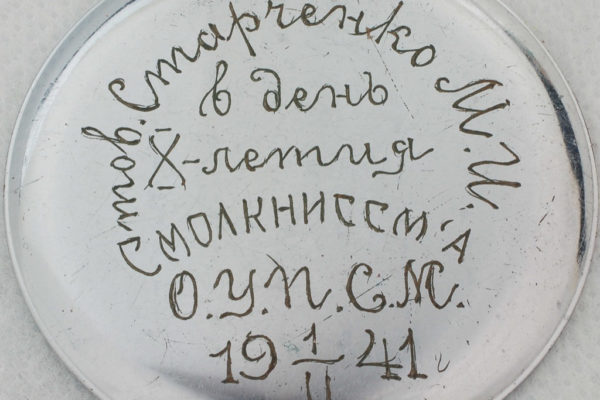 тов. Старченко М.И.
в день
X-летия
СМОЛКНИССМ'А
О.У.П.С.М.
19 1/II 41